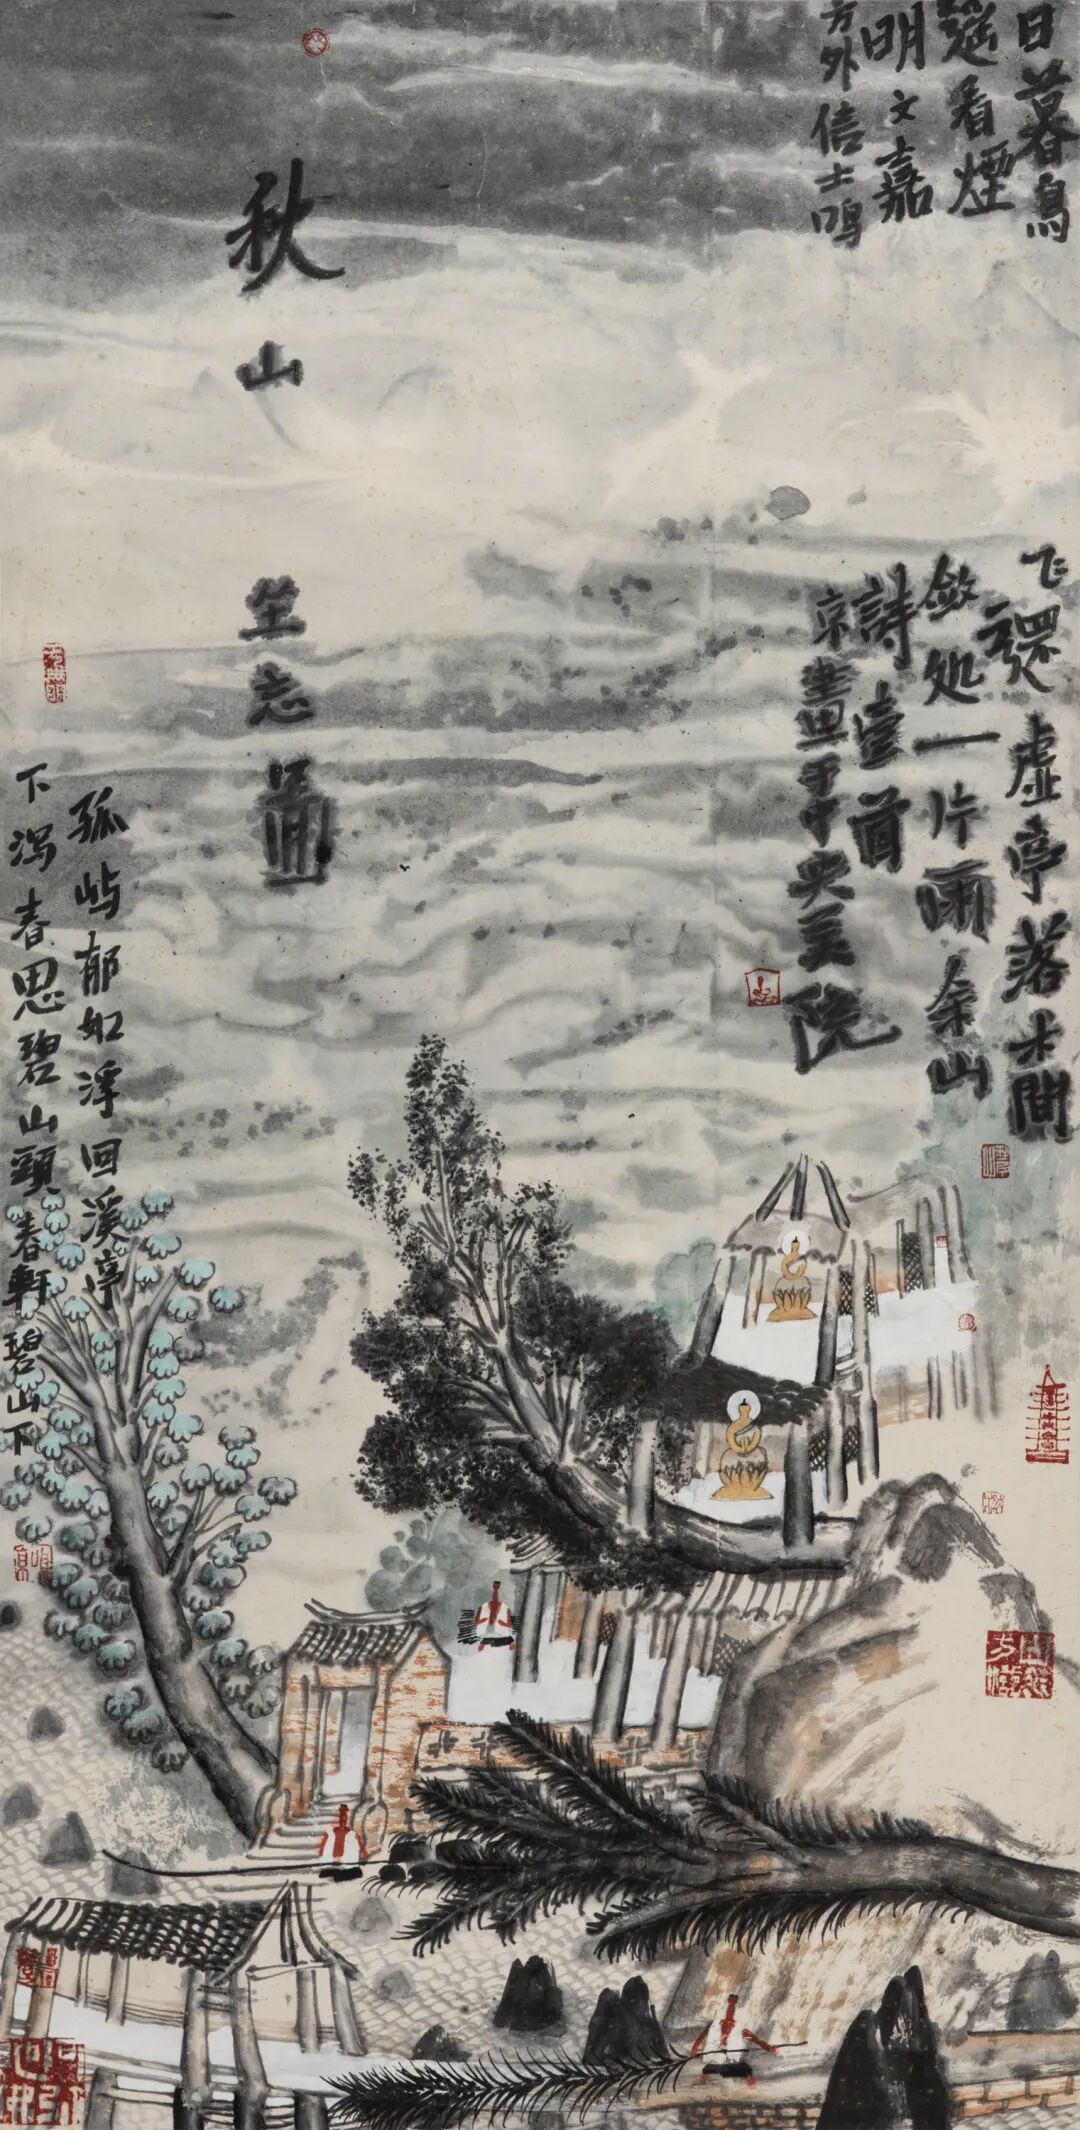 日暮鳥飞還虚亭落木間
遥看煙敛处一片雨余山
明文嘉詩壹首
方外信士鸣京畫于中央美院
秋山坐忘圖
孤屿郁如浮回溪亭
下泻春思碧山頭春軒碧山下